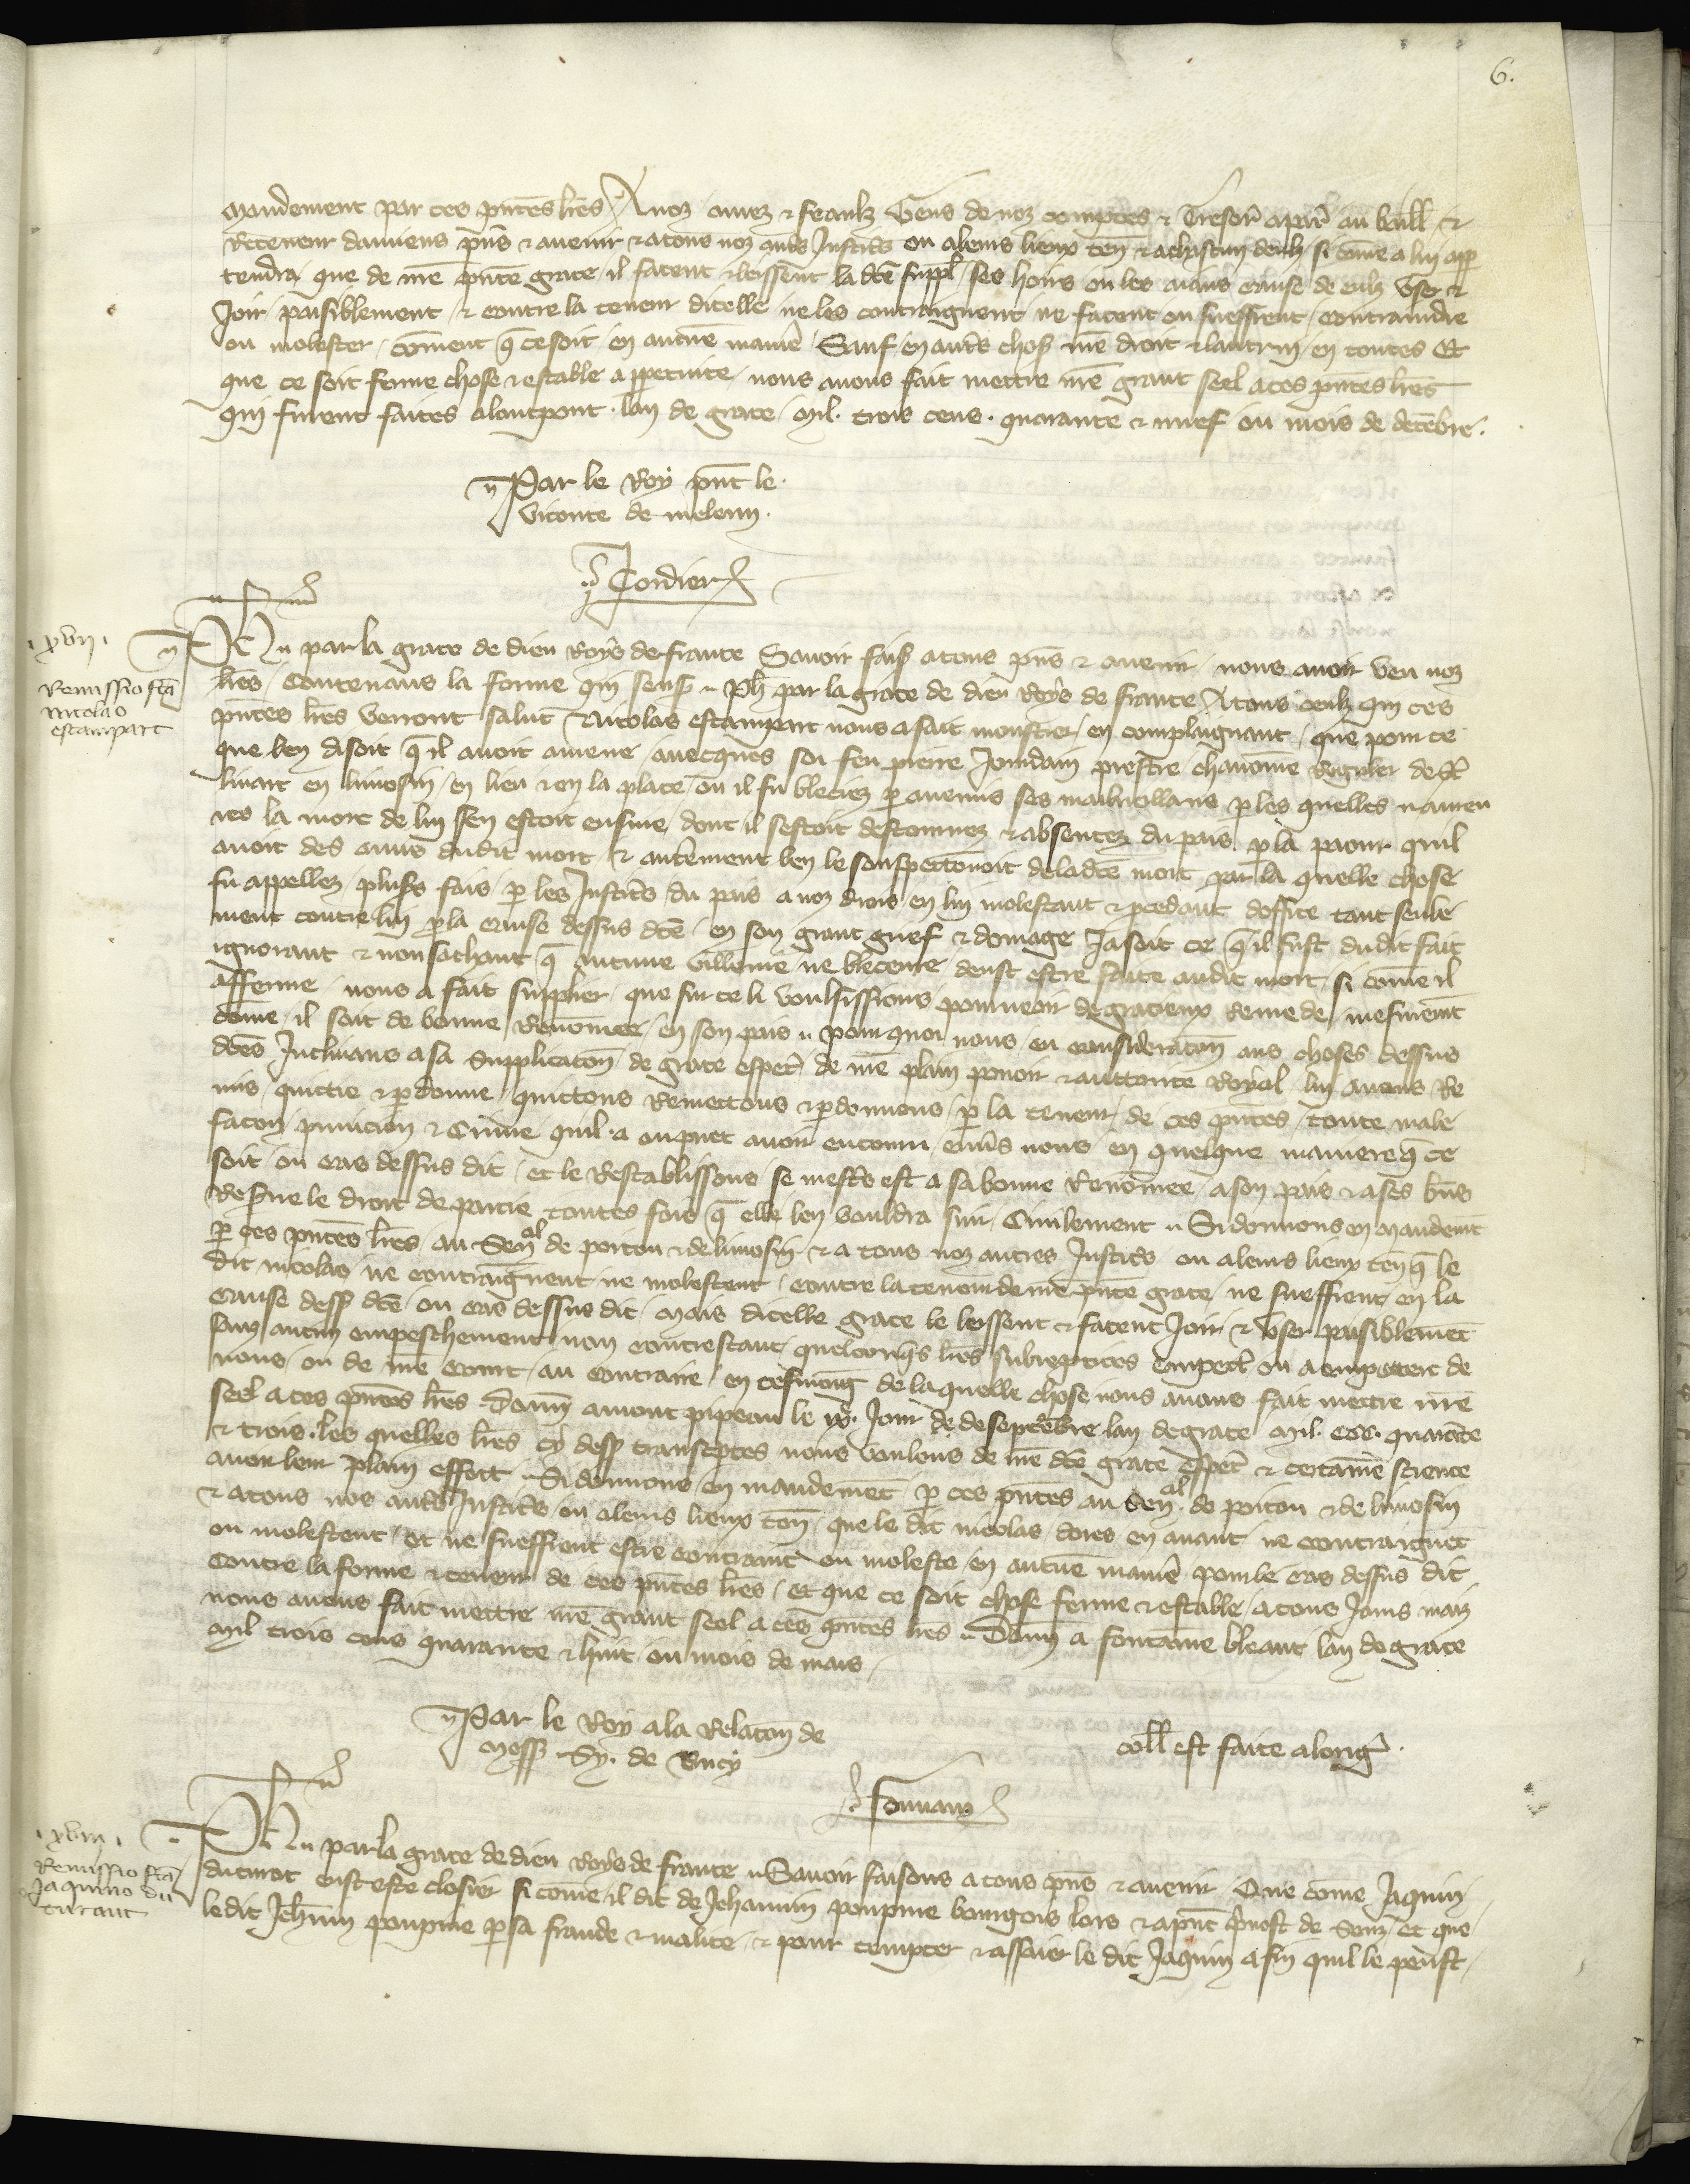 6.
mandement par ces pñtes lr̃es A noz amez & feaulz Gens de noz comptes & Tresor̃ a par̃ au baill &
Receveur damiens pñs & avenir & a tous noz autr̃s Justic̃ ou a leurs lieux ten̄ & a chascun deulz si com̃e a lui app
tendra que de nr̃e pñte grace il facent & leissent la dc̄e suppl̃ ses hoirs ou les aians cause de eulz user &
Joir paisiblement & contre la teneur dicelle ne les contraignent ne facent ou sueffrent contraindre
ou molester com̃ent q̃ ce soit en aucune maniẽ Sauf en autr̃s chos̃ nr̃e droit & lautruy en toutes Et
que ce soit ferme chose & estable a ppetuite nous avons fait mettre nr̃e grant seel a ces pñtes lr̃es
Qui furent faites a lontpont lan de grace mil. trois cens. quarante & nuef ou mois de decẽbre.
Par le Roy pñt le
viconte de meleun.
Cordier
.xvii.
Remissio fc̃a
Nicolao
estampart
Ph̃ par la grace de dieu Roys de france Savoir fais̃ a tous pñs & avenir nous avoir veu noz
lr̃es contenans la forme qui sens̃ Ph̃ par la grace de dieu Roys de france A tous ceulz qui ces
pñtes lr̃es verront salut Nicolas estampart nous a fait monstrer en complaignant que pour ce
que len disoit q̃ il avoit amene avecques soi feu pierre Jourdain prestre chanoine Reguler de
en limosin en lieu & en la place ou il fu bleciez p aucuns ses malveillans p les quelles nameu
res la mort de lui sen estoit ensuie dont il sestoit destournez & absentez du pais p la paour quil
avoit des amis dudit mort & autrement len le souspeconoit de la dc̄e mort par la quelle chose
fu appellez plus̃s fois p les Justic̃s du pais a noz drois en lui molestant & pcedant doffice tant seule
ment contre lui p la cause dessus dc̄e en son grant grief & domage Ja soit ce q̃ il fust dudit fait
ignorant & non sachant q̃ aucune villenie ne bleceure deust estre faite audit mort si com̃e il
afferme nous a fait supplier que sur ce li voulsissions pourveoir de gracieux remede mesment
com̃e il soit de bonne Renom̃ee en son pais Pour quoi nous en consideracõn aus choses dessus
dc̄es Inclinans a sa supplicacõn de grace especl̃ de nr̃e plain povoir & auctorite Royal lui avons Re
mis quittie & pdonne quittons Remettons & pdonnons p la teneur de ces pñtes toute male
facon punicion & Crime quil a ou puet avoir encouru envs̃ nous en quelque maniere q̃ ce
soit ou cas dessus dit Et le Restablissons se mest̃s est a sa bonne Renom̃ee a son pais & a ses bñs
Res̃ve le droit de partie toutes fois q̃ elle len vouldra suir Civilement Si donnons en mandemt̃
p ces pñtes lr̃es au Señal de poitou & de limosin & a tous noz autres Justic̃s ou a leurs lieux teñ q̃ le
dit nicolas ne contraignent ne molestent contre la teneur de nr̃e pñte grace ne sueffrent en la
cause dess̃ dc̄e ou cas dessus dit Mais dicelle grace le leissent & facent Joir & user paisiblemet̃
sanz aucun empeschement non contrestant quelconq̃s lr̃es subreptices empetr̃ ou a empetrer de
nous ou de nr̃e court au contraire en tesmoing de la quelle chose nous avons fait mettre nr̃e
seel a ces pñtes lr̃es Donn̄ a mont pipeau le jour de de septembre lan de grace mil. CCC. quarãte
& trois. les quelles lr̃es cy dess̃ transcptes nous voulons de nr̃e dc̄e grace especl̃ & certaine science
avoir leur plain effect Si donnons en mandemet̃ p ces pñtes au Señal de poitou & de limosin
& a tous nos autr̃s Justic̃s ou a leurs lieux teñ que le dit nicolas dores en avant ne contraignet̃
ou molestent Et ne sueffrent estre contraint ou moleste en aucune maniẽ pour le cas dessus dit
Contre la forme & teneur de ces pñtes lr̃es Et que ce soit chose ferme & estable a tous Jours mais
nous avons fait mettre nr̃e grant seel a ces pñtes lr̃es Donn̄ a fontaine bleaut lan de grace
Mil trois cens quarante & huit ou mois de mars
Par le Roy a la Relacõn de
mess̃ Sy. de Bucy
coll̃ est faite a lorig̃.
.xviii.
Remissio fc̃a
Jaquino du
turaut
Ph̃ par la grace de dieu Roys de france Savoir faisons a tous pñs & avenir Que com̃e Jaquin
eust este closier si com̃e il dit de Jehannin poupine bourgois lors & apñt p̃vost de Et que
le dit Jeh̃nin poupine p sa fraude & malice & pour tempter & assaier le dit Jaquin a fin quil le peust